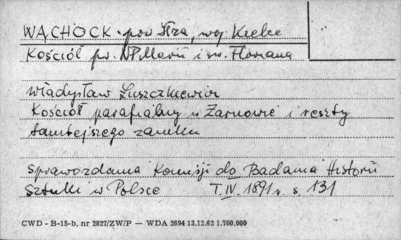 WĄCHOCK pow Iłża, woj. Kielce
Kościół pw. NP. Marii i św. Floriana
Władysław Łuszczkiewicz
Kościół parafialny w Żarnowie i reszty
tamtejszego zamku
Sprawozdania Komisji do Badania Historii
Sztuki w Polsce T. IV. 1891 r. s. 131
CWD - B-15-b, nr 2827/ZW/P — WDA 2694 13.12.62 1.700.000